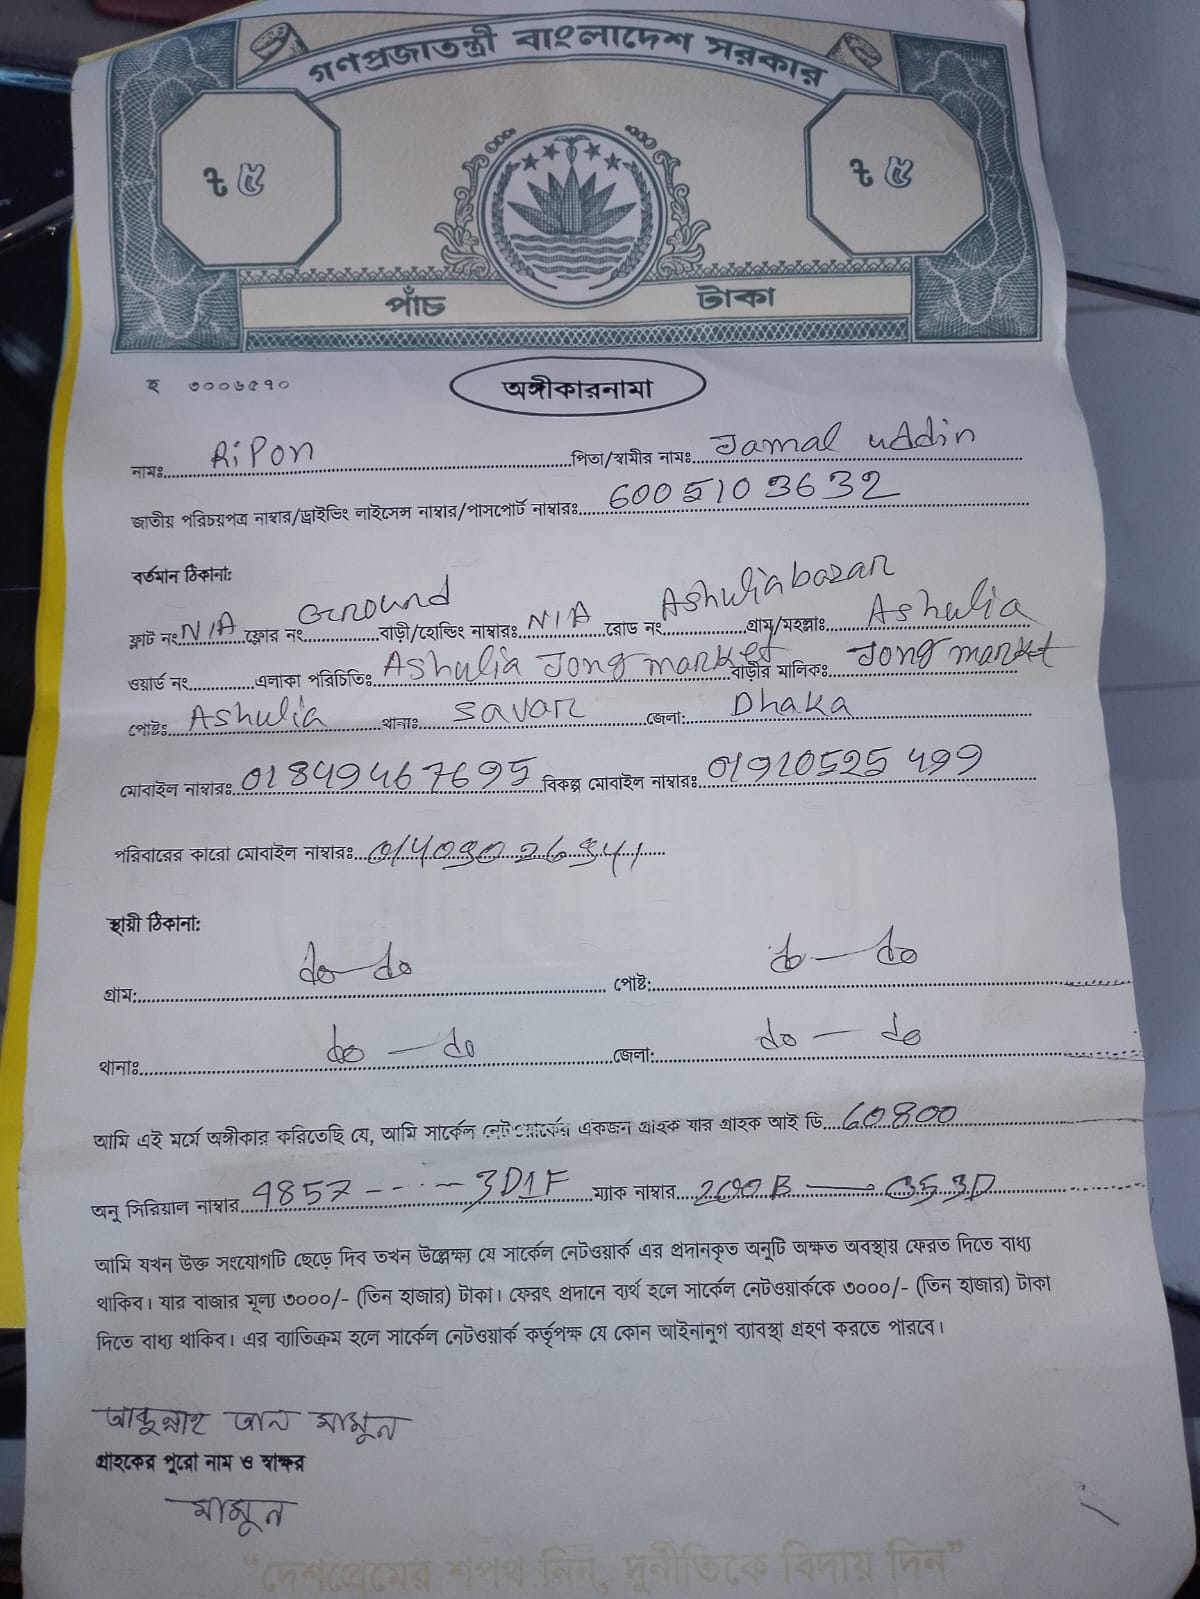 গণপ্রজাতন্ত্রী বাংলাদেশ সরকার
৳ ৫ ৳ ৫
পাঁচ টাকা
হ ৩০০৬৫৭০
অঙ্গীকারনামা
নামঃ Ripon পিতা/স্বামীর নামঃ Jamal uddin
জাতীয় পরিচয়পত্র নাম্বার/ড্রাইভিং লাইসেন্স নাম্বার/পাসপোর্ট নাম্বারঃ 6005103632
বর্তমান ঠিকানা:
ফ্লাট নং N/A ফ্লোর নং Ground বাড়ী/হোল্ডিং নাম্বারঃ N/A রোড নং Ashulia bazar গ্রাম/মহল্লাঃ Ashulia
ওয়ার্ড নং এলাকা পরিচিতিঃ Ashulia Jong market বাড়ীর মালিকঃ Jong market
পোষ্টঃ Ashulia থানাঃ Savar জেলা: Dhaka
মোবাইল নাম্বারঃ 01849467695 বিকল্প মোবাইল নাম্বারঃ 01920525499
পরিবারের কারো মোবাইল নাম্বারঃ
স্থায়ী ঠিকানা:
গ্রাম: do do পোষ্ট: do — do
থানাঃ do — do জেলা: do — do
আমি এই মর্মে অঙ্গীকার করিতেছি যে, আমি সার্কেল নেটওয়ার্কের একজন গ্রাহক যার গ্রাহক আই ডি 60800
অনু সিরিয়াল নাম্বার 4857 - - - - 3D1F ম্যাক নাম্বার
আমি যখন উক্ত সংযোগটি ছেড়ে দিব তখন উল্লেক্ষ্য যে সার্কেল নেটওয়ার্ক এর প্রদানকৃত অনুটি অক্ষত অবস্থায় ফেরত দিতে বাধ্য
থাকিব। যার বাজার মূল্য ৩০০০/- (তিন হাজার) টাকা। ফেরৎ প্রদানে ব্যর্থ হলে সার্কেল নেটওয়ার্ককে ৩০০০/- (তিন হাজার) টাকা
দিতে বাধ্য থাকিব। এর ব্যাতিক্রম হলে সার্কেল নেটওয়ার্ক কর্তৃপক্ষ যে কোন আইনানুগ ব্যাবস্থা গ্রহণ করতে পারবে।
মামুন
গ্রাহকের পুরো নাম ও স্বাক্ষর
মামুন
“দেশপ্রেমের শপথ নিন, দুর্নীতিকে বিদায় দিন”